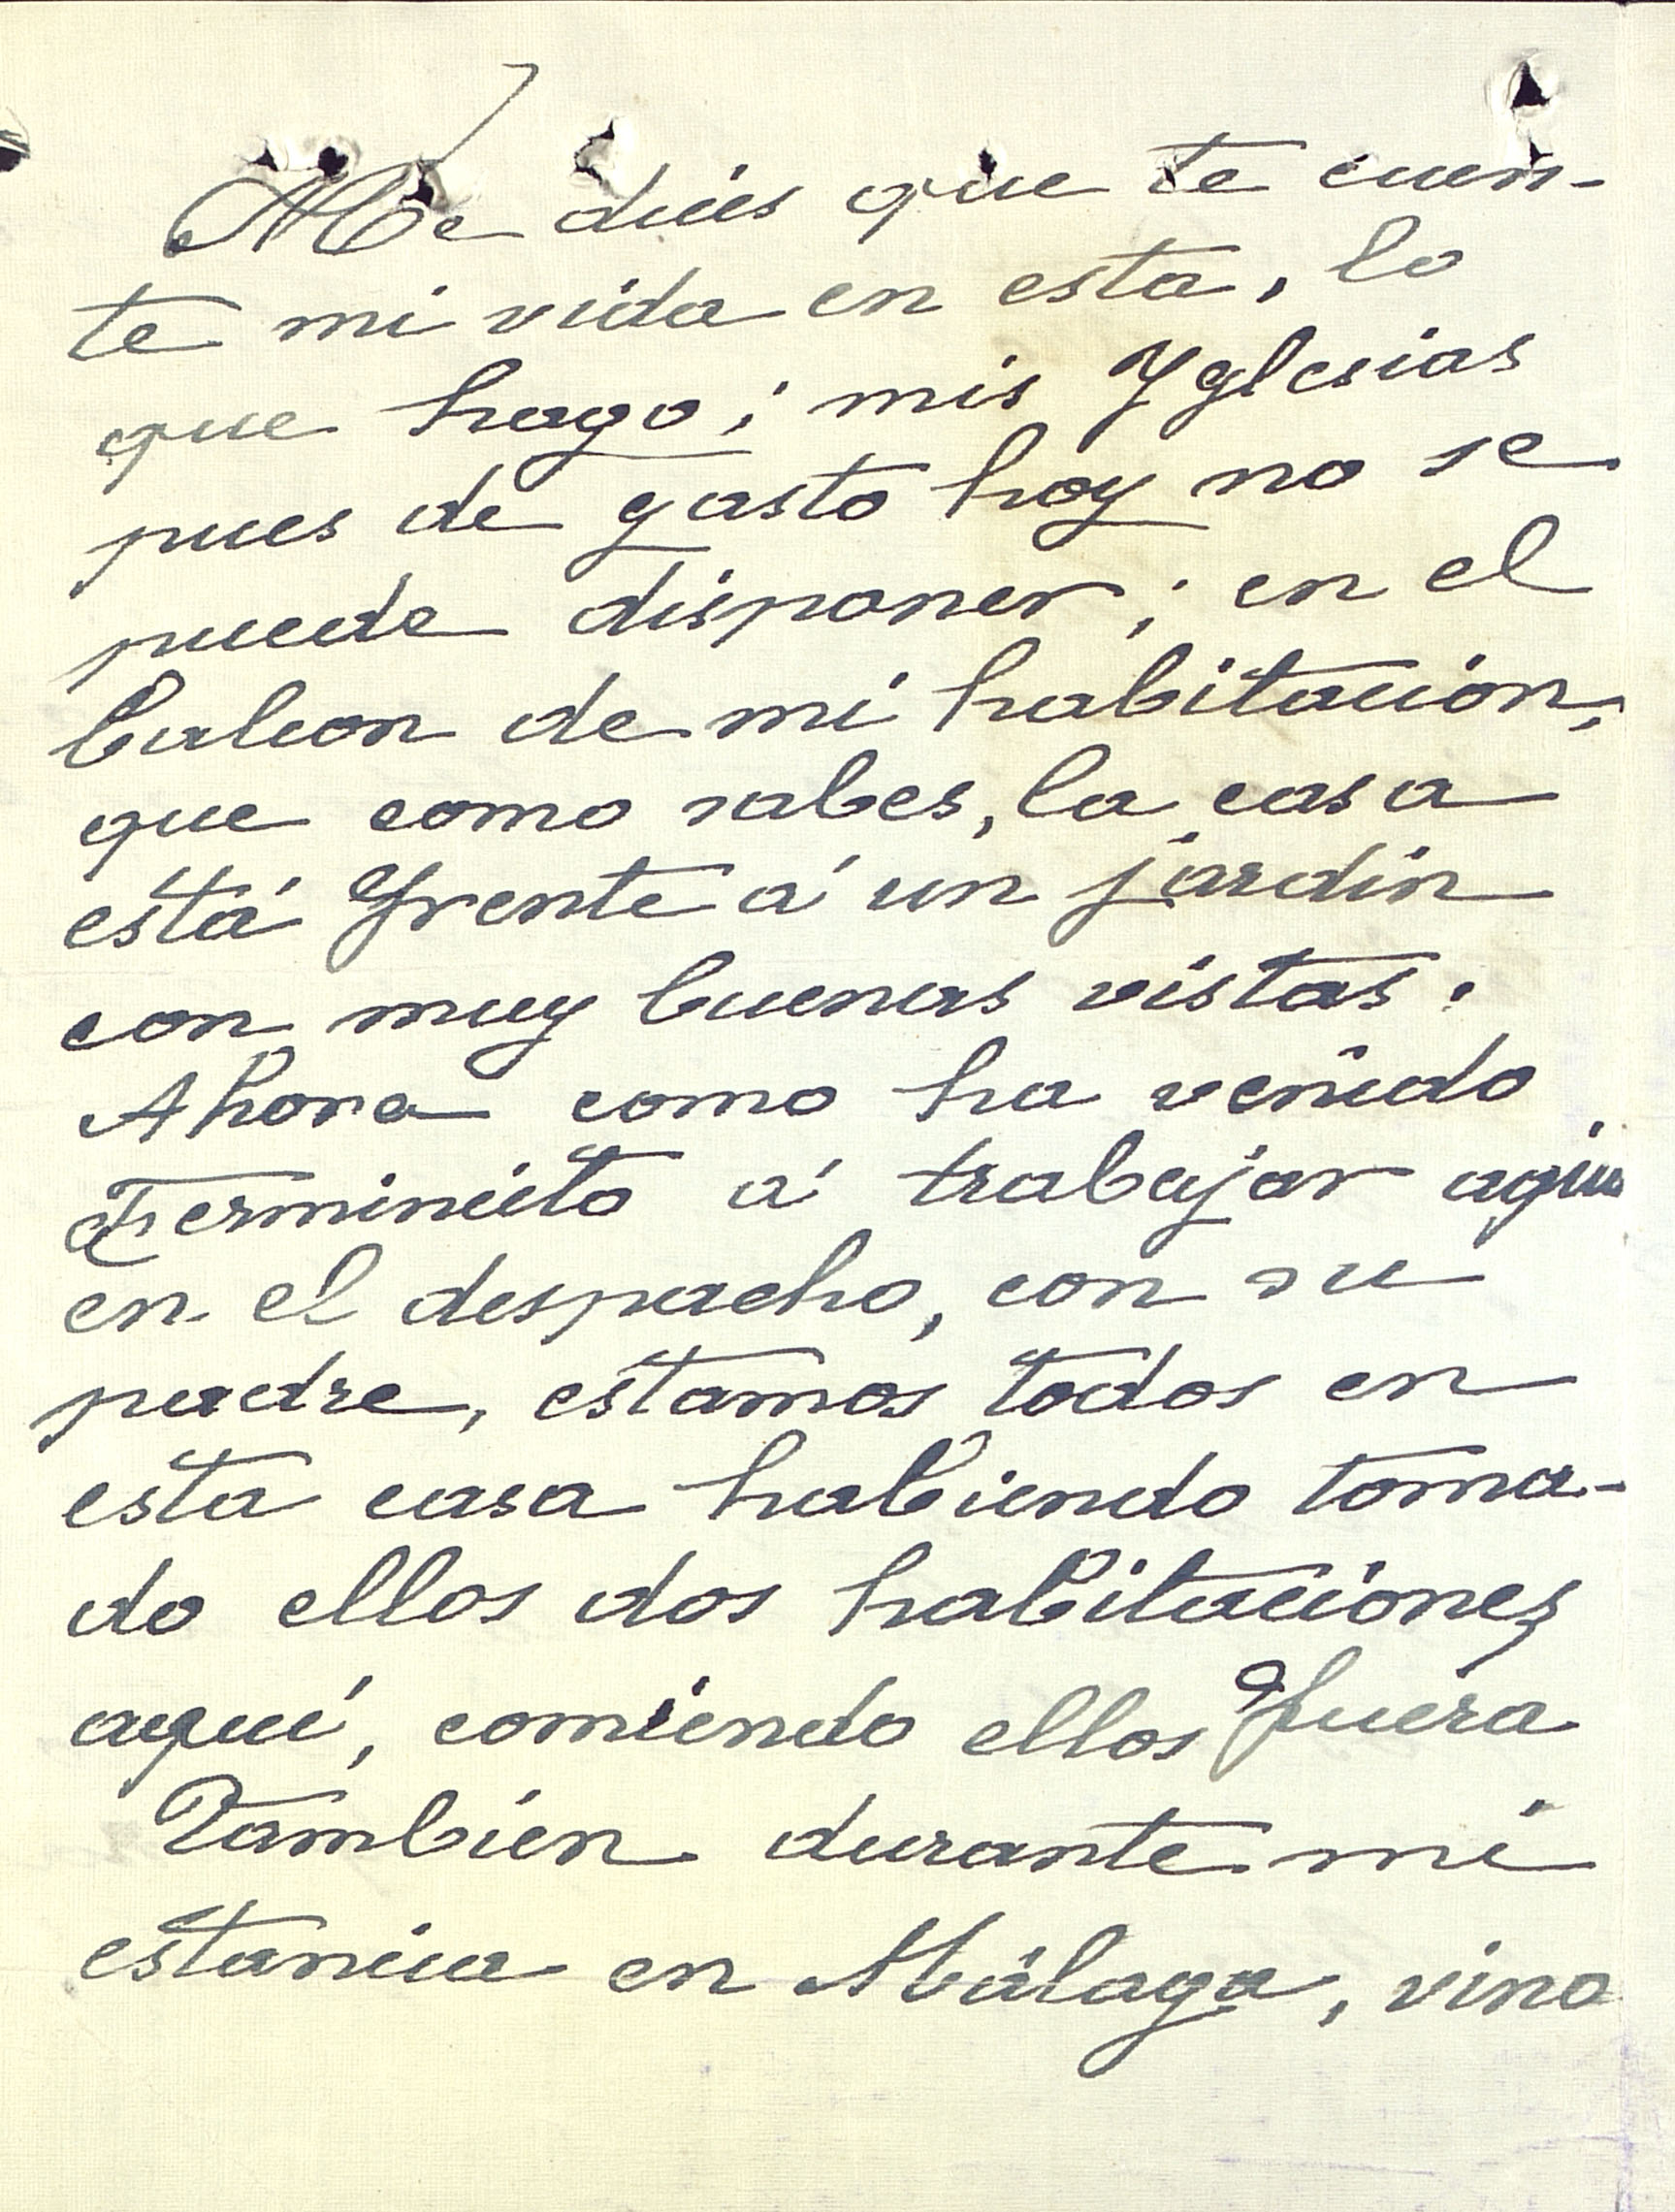 Me dices que te cuen-
te mi vida en esta, lo
que hago; mis Yglesias
pues de gasto hoy no se
puede disponer; en el
balcon de mi habitación,
que como sabes, la casa
está frente á un jardin
con muy buenas vistas.
Ahora como ha venido
Fermincito á trabajar aqui
en el despacho, con su
padre, estamos todos en
esta casa habiendo toma-
do ellos dos habitaciones
aquí, comiendo ellos fuera
Tambien durante mi
estancia en Málaga, vino